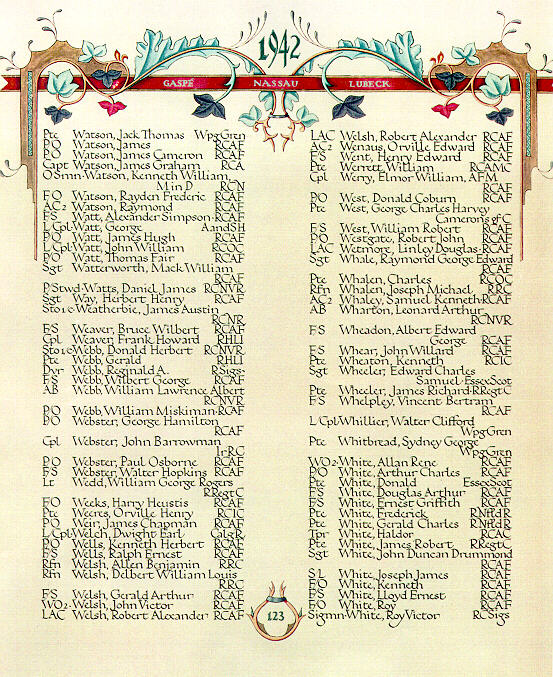 1942
GASPÉ NASSAU LUBECK
Ptc Watson, Jack Thomas WpgGren
P/O Watson, James RCAF
P/O Watson, James Cameron RCAF
Capt Watson, James Graham RCA
O Smn-Watson, Kenneth William,
M in D RCN
F/O Watson, Rayden Frederic RCAF
AC2 Watson, Raymond RCAF
F/S Watt, Alexander Simpson-RCAF
L/Cpl-Watt, George AandSH
P/O Watt, James Hugh RCAF
L/Cpl-Watt, John William RCOC
P/O Watt, Thomas Fair RCAF
Sgt Watterworth, Mack William
RCAF
P/Stwd-Watts, Daniel James RCNVR
Sgt Way, Herbert Henry RCAF
Sto1c-Weatherbie, James Austin
RCNR
F/S Weaver, Bruce Wilbert RCAF
Cpl Weaver, Frank Howard RHLI
Sto1c-Webb, Donald Herbert RCNVR
Ptc Webb, Gerald RHLI
Dvr Webb, Reginald A. RSigs
F/S Webb, Wilbert George RCAF
AB Webb, William Lawrence Albert
RCNVR
P/O Webb, William Miskiman-RCAF
P/O Webster, George Hamilton
RCAF
Cpl Webster, John Barrowman
IrRC
P/O Webster, Paul Osborne RCAF
F/S Webster, Walter Hopkins RCAF
Lt Wedd, William George Rogers
RRegtC
F/O Weeks, Harry Heustis RCAF
Ptc Weeres, Orville Henry RCIC
P/O Weir, James Chapman RCAF
L/Cpl-Welch, Dwight Earl CalgR
P/O Wells, Kenneth Herbert RCAF
F/S Wells, Ralph Ernest RCAF
Rfn Welsh, Allen Benjamin RRC
Rfn Welsh, Delbert William Louis
RRC
F/S Welsh, Gerald Arthur RCAF
WO2-Welsh, John Victor RCAF
LAC Welsh, Robert Alexander RCAF
LAC Welsh, Robert Alexander RCAF
AC2 Wenaus, Orville Edward RCAF
F/S Went, Henry Edward RCAF
Ptc Werrett, William RCAMC
Cpl Werry, Elmor William, AFM
RCAF
P/O West, Donald Coburn RCAF
Ptc West, George Charles Harvey
Camerons of C
F/S West, William Robert RCAF
P/O Westgate, Robert John RCAF
LAC Wetmore, Linley Douglas-RCAF
Sgt Whale, Raymond George Edward
RCAF
Ptc Whalen, Charles RCOC
Rfn Whalen, Joseph Michael RRC
AC2 Whaley, Samuel Kenneth RCAF
AB Wharton, Leonard Arthur
RCNVR
F/S Wheadon, Albert Edward
George RCAF
F/S Whear, John Willard RCAF
Ptc Wheaton, Kenneth RCIC
Sgt Wheeler, Edward Charles
Samuel-EssexScot
Ptc Wheeler, James Richard-RRegtC
F/S Whelpley, Vincent Bertram
RCAF
L/Cpl Whillier, Walter Clifford
WpgGren
Ptc Whitbread, Sydney George
WpgGren
WO2-White, Allan Rene RCAF
P/O White, Arthur Charles RCAF
Ptc White, Donald EssexScot
F/S White, Douglas Arthur RCAF
F/S White, Ernest Griffith RCAF
Ptc White, Frederick RNfldR
Ptc White, Gerald Charles RNfldR
Tpr White, Haldor RCAC
Ptc White, James Robert RRegtC
Sgt White, John Duncan Drummond
RCAF
S/L White, Joseph James RCAF
F/O White, Kenneth RCAF
F/S White, Lloyd Ernest RCAF
F/O White, Roy RCAF
Sigmn-White, Roy Victor RCSigs
123